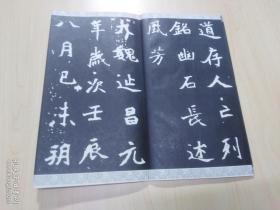 道存人亡列
銘幽石長述
風芳
大魏延昌元
年歲次壬辰
八月己未朔